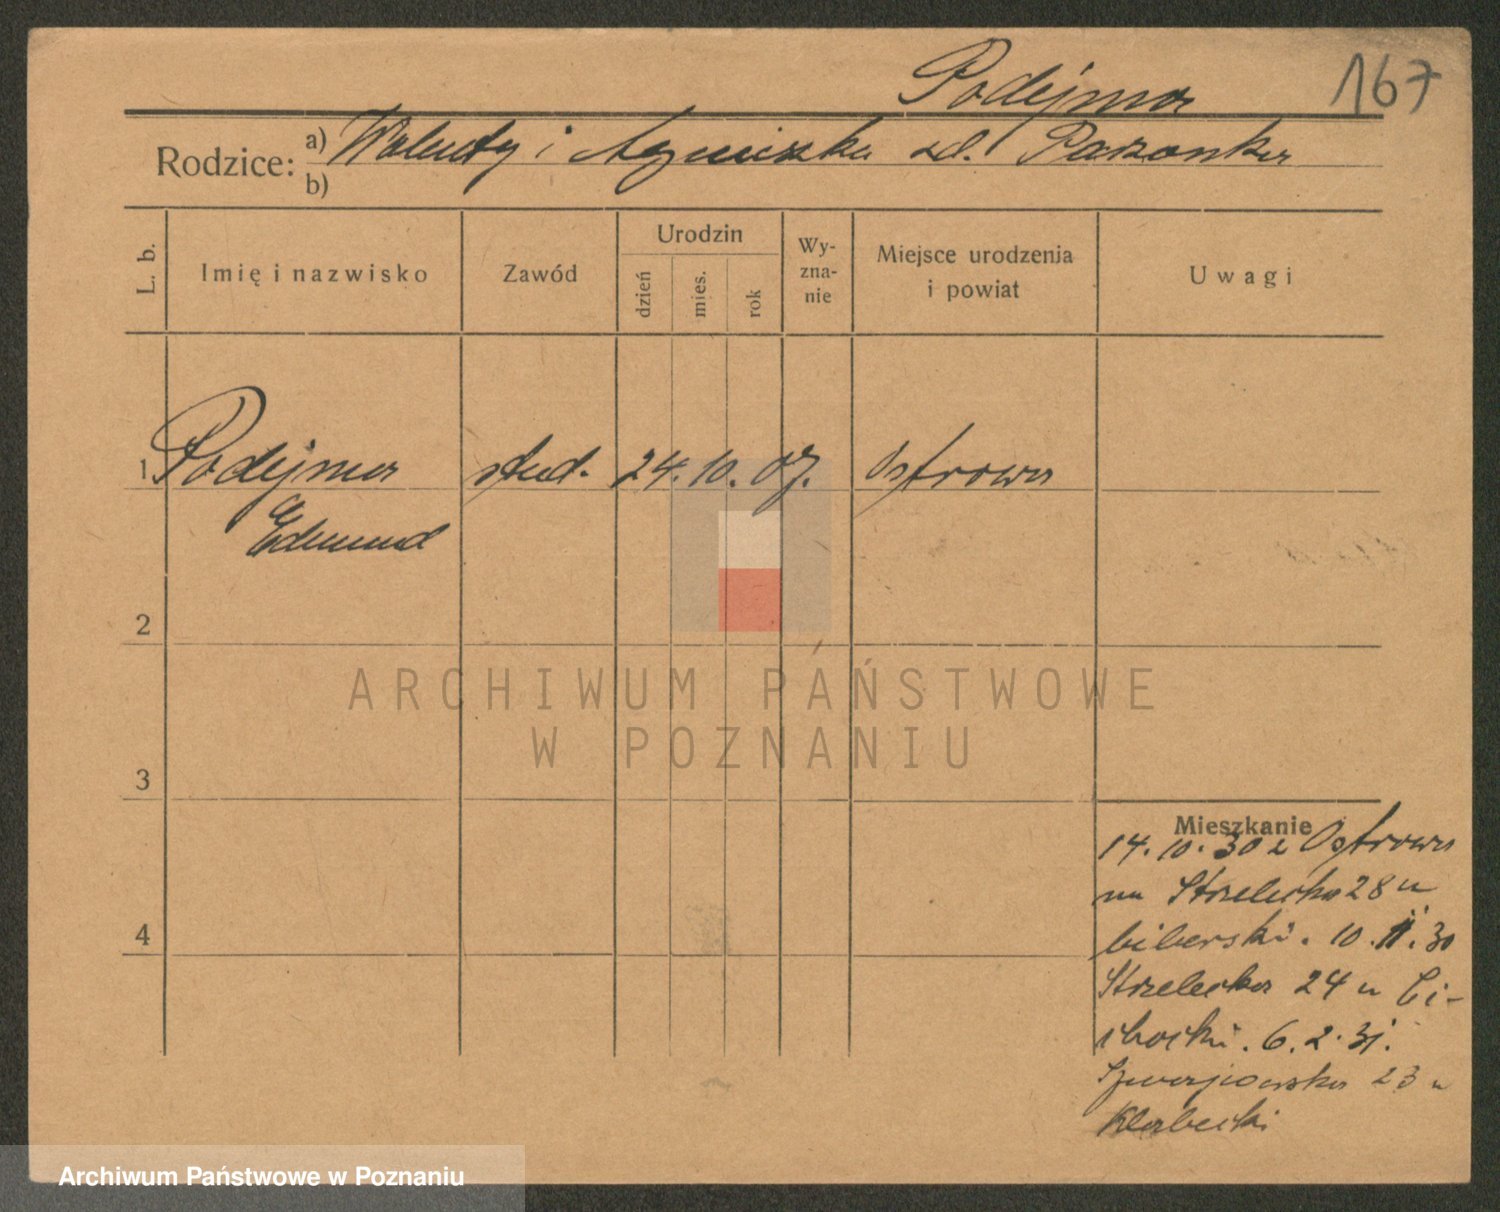 Podejma 167
Rodzice: a) Walenty i Agnieszka zd.
b)
L. b. Imię i nazwisko Zawód Urodzin dzień mies. rok Wy-zna-nie Miejsce urodzenia i powiat Uwagi
1 Podejma stud. 24. 10. 07. Ostrowa
Edmund
2
ARCHIWUM PAŃSTWOWE
W POZNANIU
3
Mieszkanie
14. 10. 30 z Ostrowa
na Strzelecka 28 u
biberski. 10. 11. 30
4
Strzelecka 24 u Ci-
chocki. 6. 2. 31.
23 u
Klabecki
Archiwum Państwowe w Poznaniu